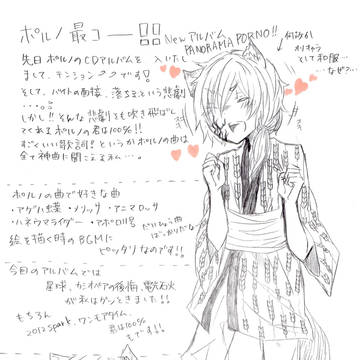 ポルノ最コー!!
New アルバム
PANORAMA PORNO!!
先日ポルノのCDアルバムを入手
しまして、テンション↗↗です!
そして、バイトの面接、落ちるという悲劇
…。
しかし!!そんな悲劇も吹き飛ばし
てくれるポルノの君は100%!!
すごくいい歌詞!というかポルノの曲は
全て神曲に聞こえホム…。
ポルノの曲で好きな曲
・アゲハ蝶・メリッサ・アニマロッサ
・ハネウマライダー・アポロ11号
絵を描く時のBGMに
ピッタリなのです!!
今回のアルバムでは
星球、カシオペヤの後悔、電光石火
が私はグッときました!!
もちろん
2012spark、ワンモアタイム、
君は100%
もです!!
何故か
ねこみみ
そして和服…
なぜ…?